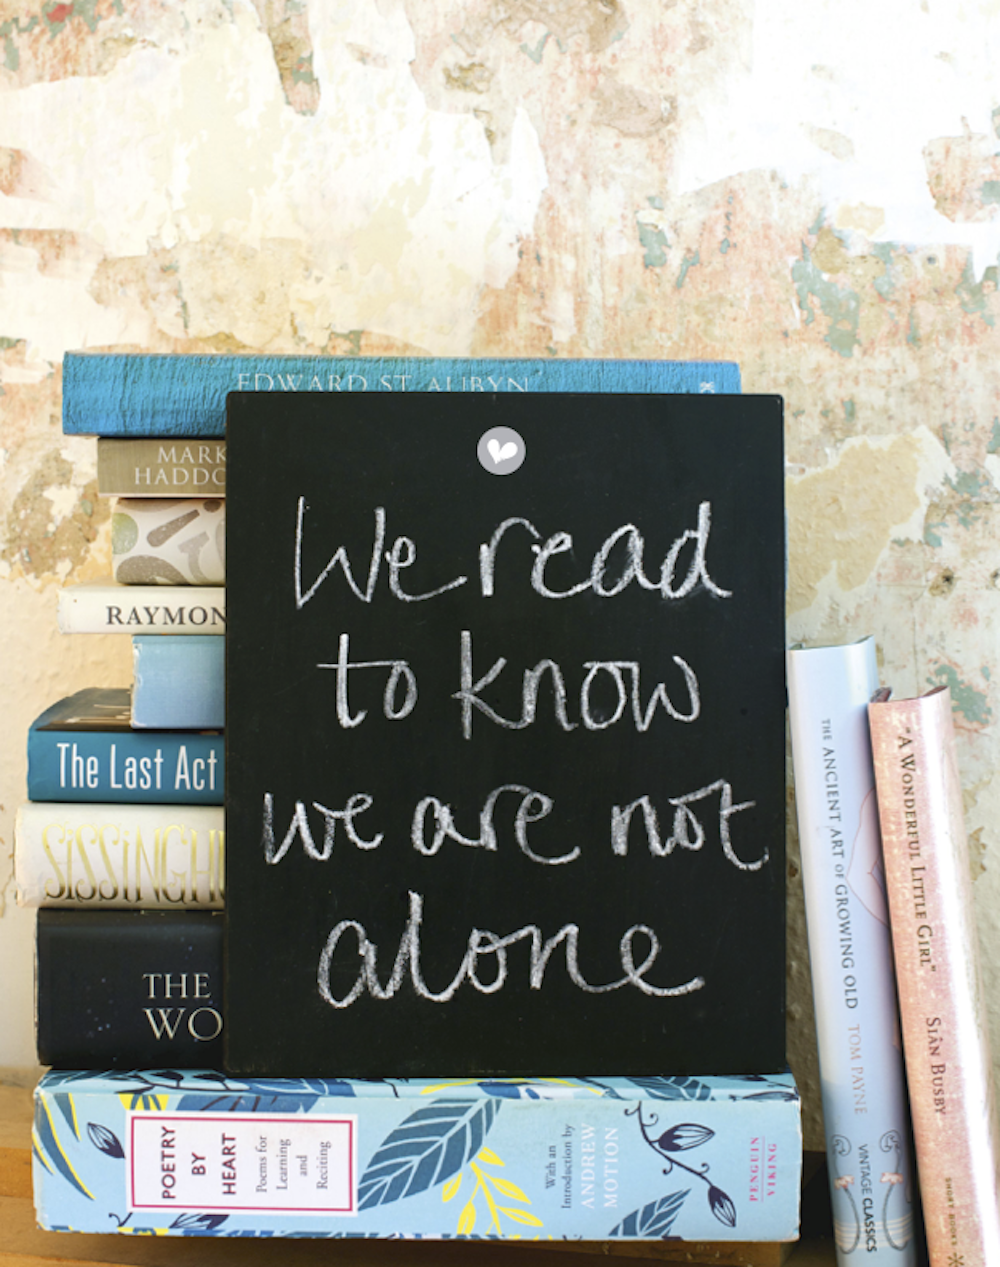 EDWARD ST AUBYN
MARK
HADDO
We read
to know
we are not
alone
RAYMON
The Last Act
SISSINGH
THE
WO
POETRY
BY
HEART
Poems for
Learning
and
Reciting
With an
Introduction by
ANDREW
MOTION
PENGUIN
VIKING
THE ANCIENT ART OF GROWING OLD TOM PAYNE
VINTAGE CLASSICS
"A WONDERFUL LITTLE GIRL" SIÂN BUSBY
SHORT BOOKS